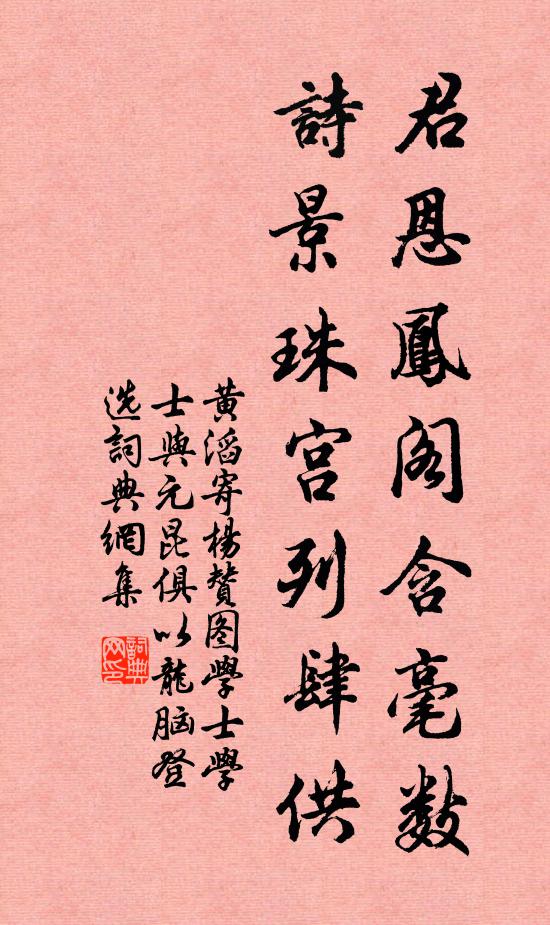 君恩鳳閣含毫數
詩景珠宮列肆供
黃滔寄楊贊圖學士學
士與元昆俱以龍脑登
选詞典網集
詞典
网印